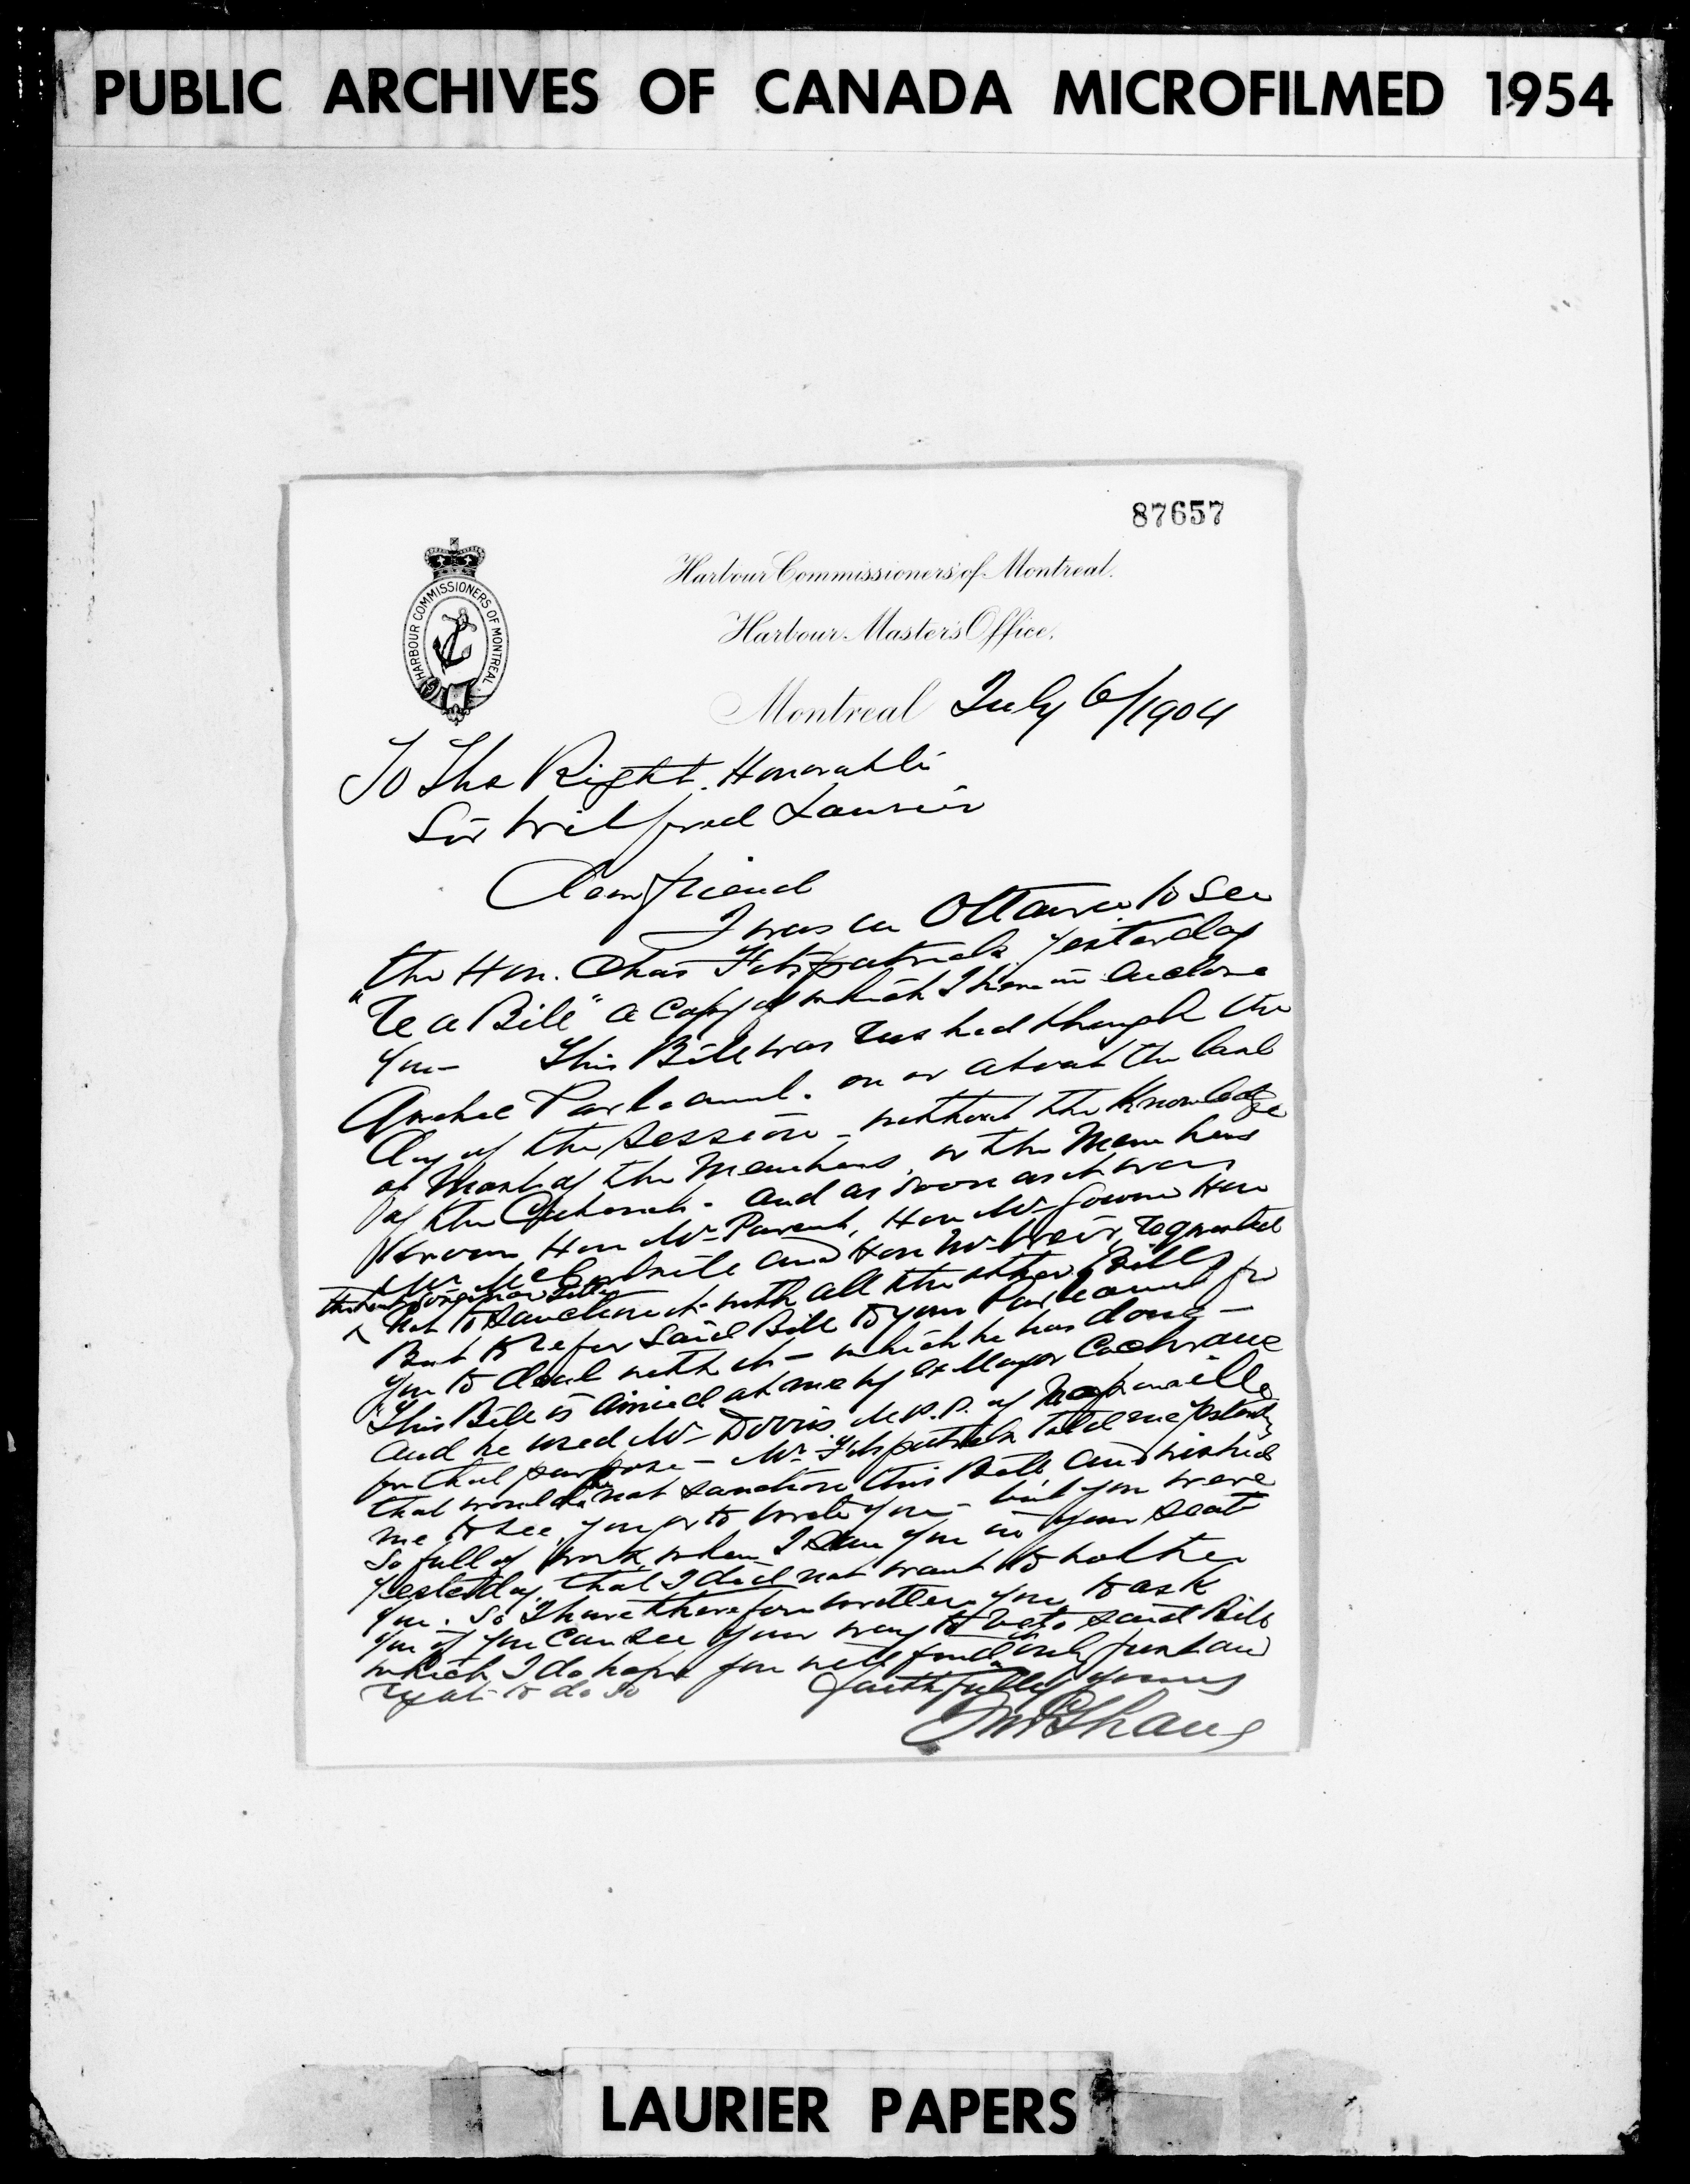 PUBLIC ARCHIVES OF CANADA MICROFILMED 1954
87657
HARBOUR COMMISSIONERS OF MONTREAL
Harbour Commissioners of Montreal.
Harbour Master's Office.
Montreal July 6/1904
To The Right. Honorable
Sir Wilfred Laurier
Dear friend
I was in Ottawa to see
the Hon. Chas Fitzpatrick yesterday
"Re a Bill" a Copy of which I herein enclose
you - This Bill was rushed through the
Quebec Parliament. on or about the last
day of the Session - without the Knowledge
of Most of the Members, or the Members
of the Cabinet - and as soon as it was
Known Hon Mr Parent, Hon Mr Gouin Hon
Mr McCorkill and Hon Mr Weir, requested
the Governor
not to sanction it with all the other Bills
But to refer said Bill to your Parliament for
you to deal with it - which he has done -
This Bill is aimed at me by ex Mayor Cochrane
and he used Mr Dorris M.P.P. of Napierville
for that purpose - Mr Fitzpatrick told me yesterday
that would he not sanction this Bill and wished
me to see you or to write you - but you were
So full of work when I saw you in your seat
yesterday, that I did not want to bother
you. So I have therefore written you to ask
you if you can see your way to veto said Bill
which I do hope you will find it only just and
right to do so
faithfully yours
J McShane
LAURIER PAPERS